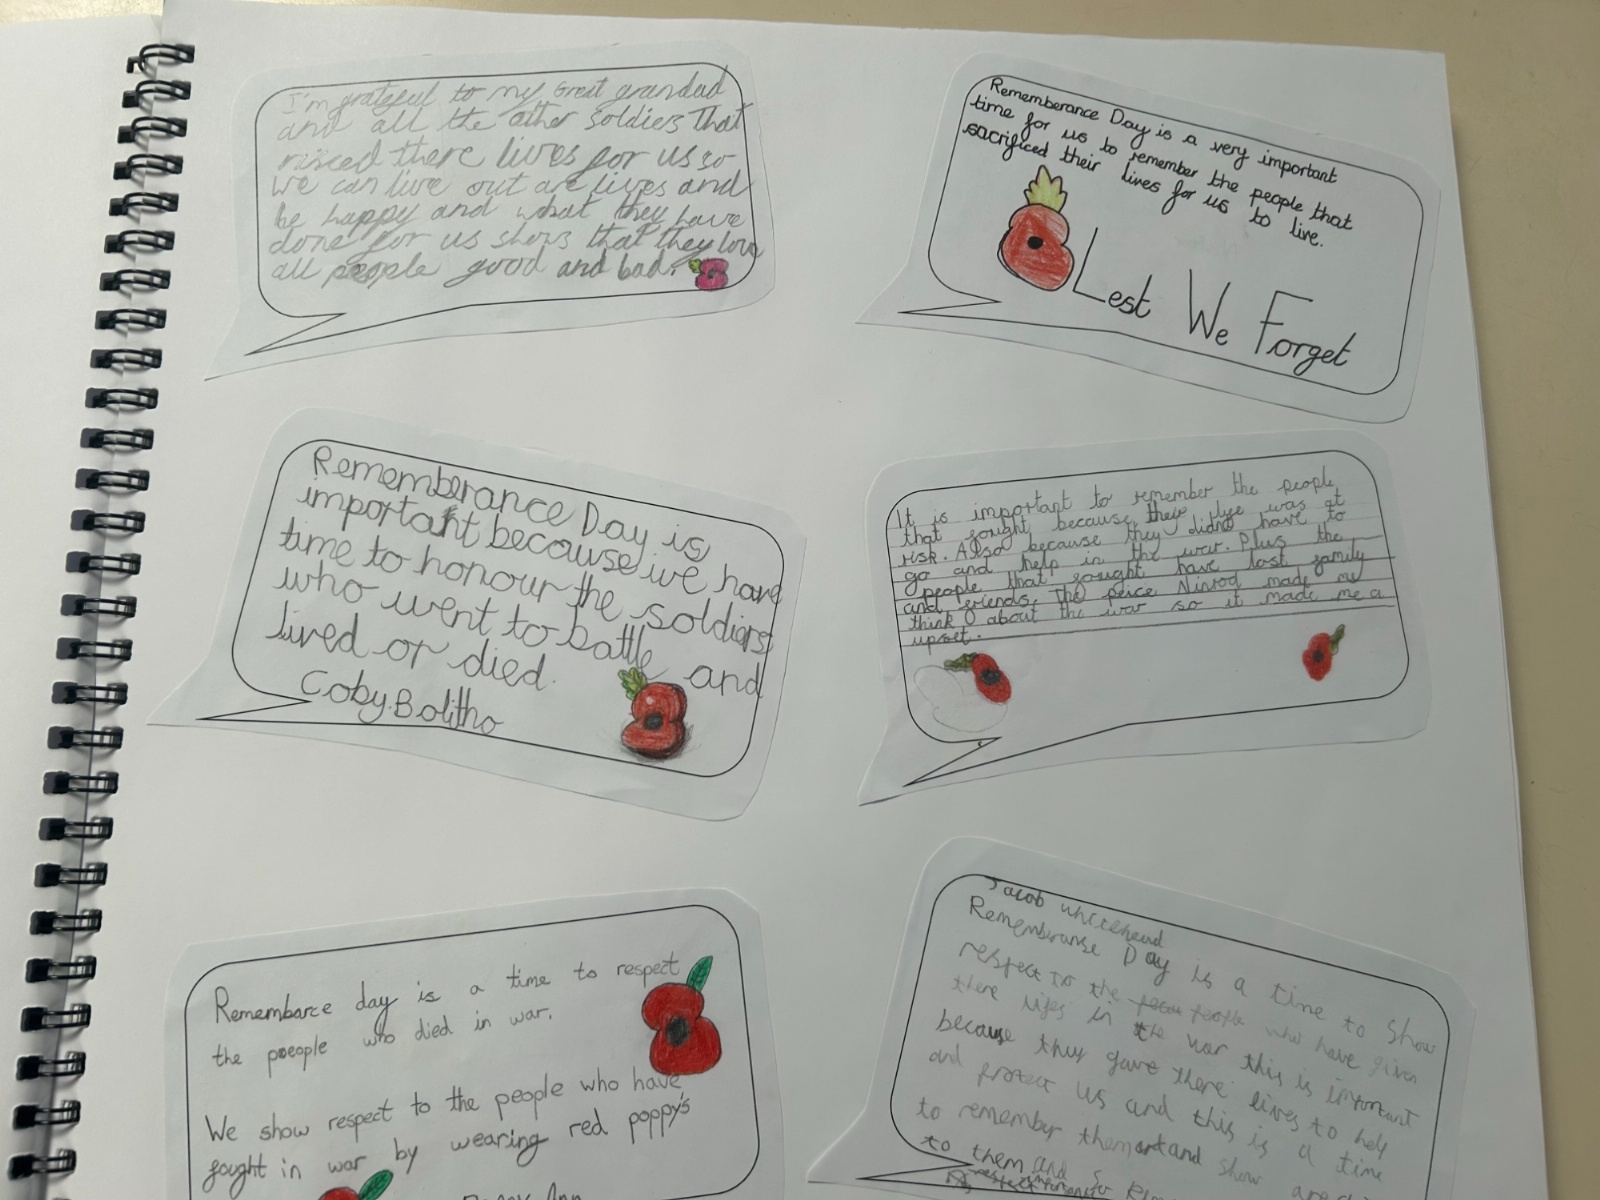 I'm grateful to my Great grandad
and all the other soldiers that
risced there lives for us so
we can live out are lives and
be happy and what they have
done for us shows that they love
all people good and bad.
Rememberance Day is a very important
time for us to remember the people that
sacrificed their lives for us to live.
Lest We Forget
Rememberance Day is
important because we have
time to honour the soldiers
who went to battle and
lived or died.
Coby.Bolitho
It is important to remember the people
that fought because their life was at
risk. Also because they didnt have to
go and help in the war. Plus the
people that fought have lost family
and friends. The peice Nimrod made me
think about the war so it made me a
upset.
Remembarce day is a time to respect
the poeople who died in war.
We show respect to the people who have
fought in war by wearing red poppy's
Jacob whitehead
Rememberanse Day is a time to show
respect to the people who have given
there lifes in the war this is important
because they gave there lives to help
and protect us and this is a time
to remember them and show
to them and